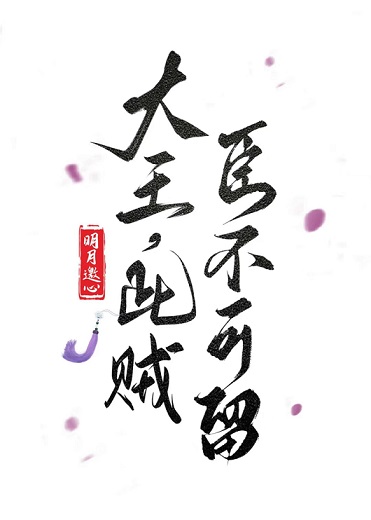 大王，此贼
臣不可留
明月邀心